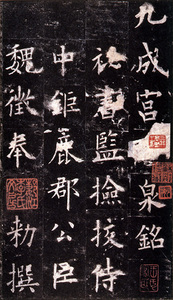 九成宮醴泉銘
秘書監檢挍侍
中鉅鹿郡公臣
魏徵奉
勑撰